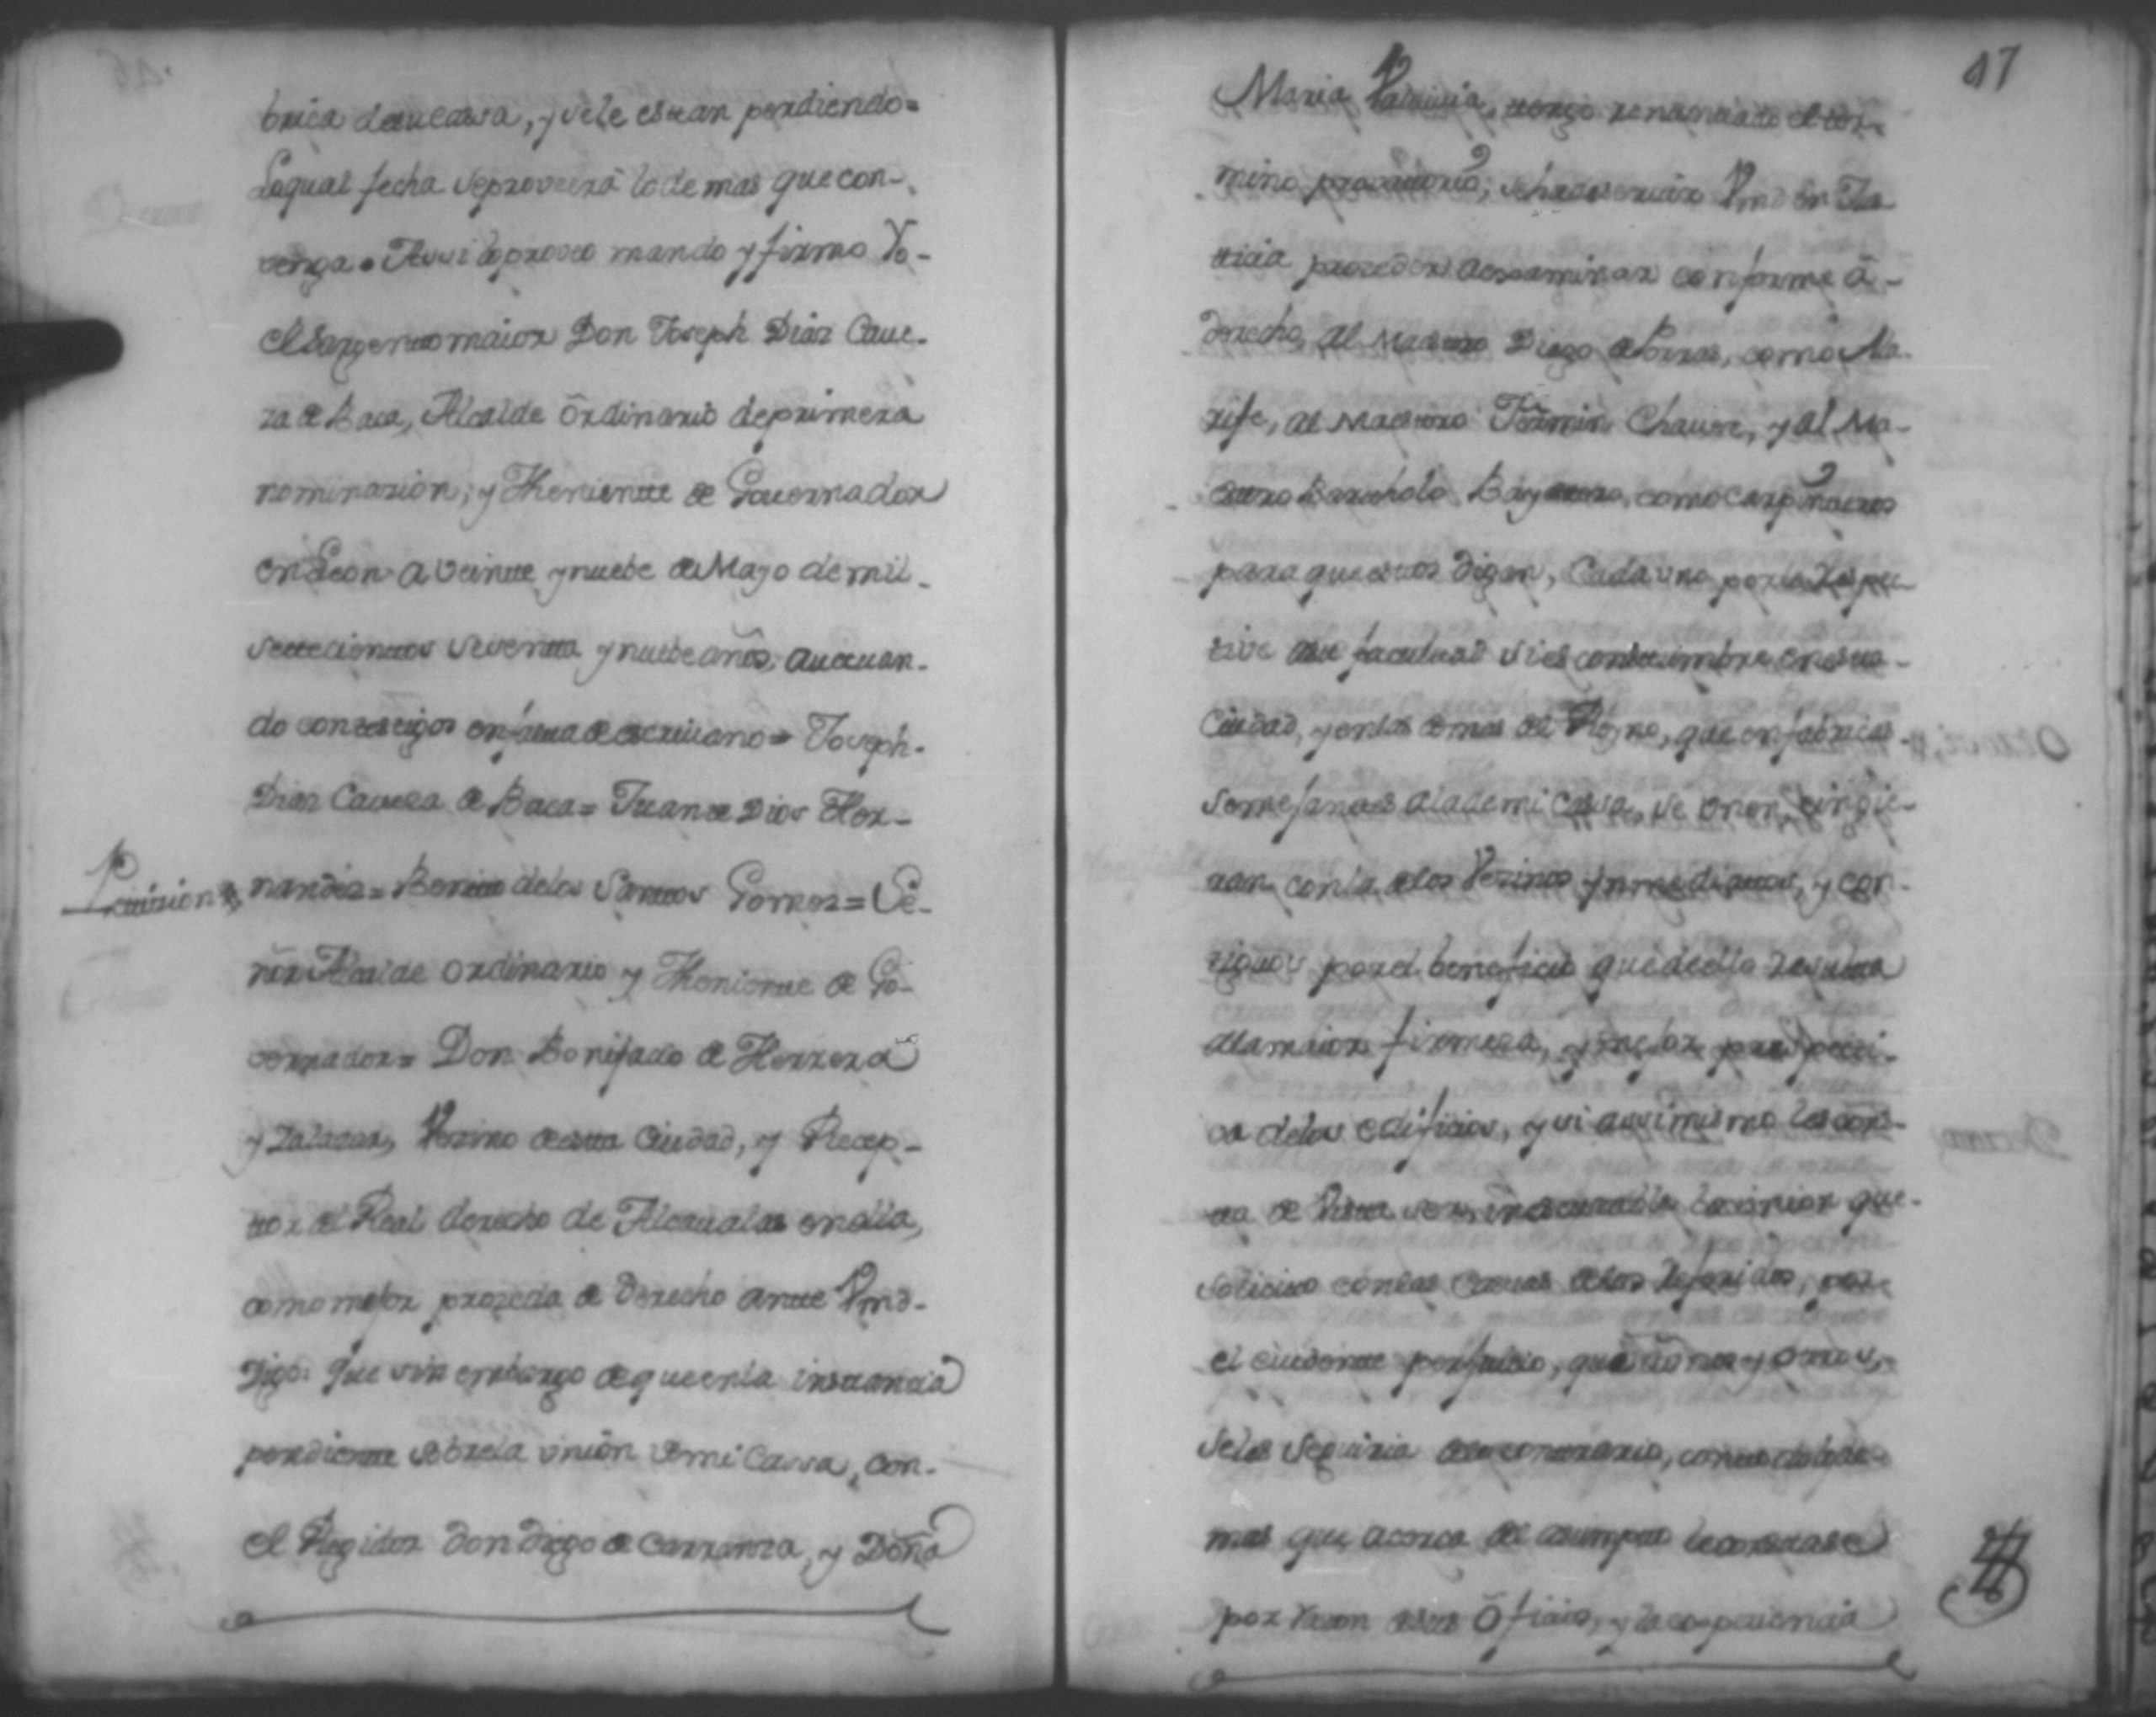 brica de su cassa, y se le estan perdiendo=
Laqual fecha se proveerá lo demas que con-
venga. Assi lo proveo mando y firmo Yo-
el Sargento maior Don Joseph Diaz Cave-
za de Baca, Alcalde Ordinario de primera
nominazion, y Theniente de Governador
en Leon a veinte y nuebe de Mayo de mil-
settecientos sesentta y nuebe años, actuan-
do con testigos en falta de escrivano= Joseph-
Diaz Caveza de Baca= Juan de Dios Her-
Peticion
nandez= Benito de los Santtos Gomez= Se-
ñor Alcalde Ordinario y Theniente de Go-
vernador= Don Bonifacio de Herrera
y Salazar, Vezino de esta Ciudad, y Recep-
tor del Real derecho de Alcavalas en ella,
como mejor prozeda de Derecho antte Vmd-
Digo: Que sin embargo de que en la instancia
pendiente sobre la union de mi Cassa, con-
el Regidor Don Diego de Carranza, y Doña
47
Maria, tengo renunciado el ter-
mino provatorio, se ha de servir Vmd en Jus-
ticia proceder a essaminar conforme â-
derecho, al Maestro Diego de Porras, como Ala-
rife, al Maestro Fermin Chavez, y al Ma-
estro, como carpinteros
para que estos digan, Cada uno por lo respec-
tive a su facultad si es constumbre en esta-
Ciudad, y en las demas del Reyno, que en fabricas
semejantes a la de mi Cassa, se unen,
con la de los Vezinos ynmediattos, y con-
tiguos por el beneficio que de ello resulta
de la maior firmeza, y mejor
de los edificios, y si assimismo les cons-
ta de Vista ser la union que-
solicito con las Casas de los referidos, por
el evidente perjuicio, que y otros,
se les seguiria de lo contrario, con todo lo de-
mas que acerca del asumpto
por razon de su Oficio, y la experiencia